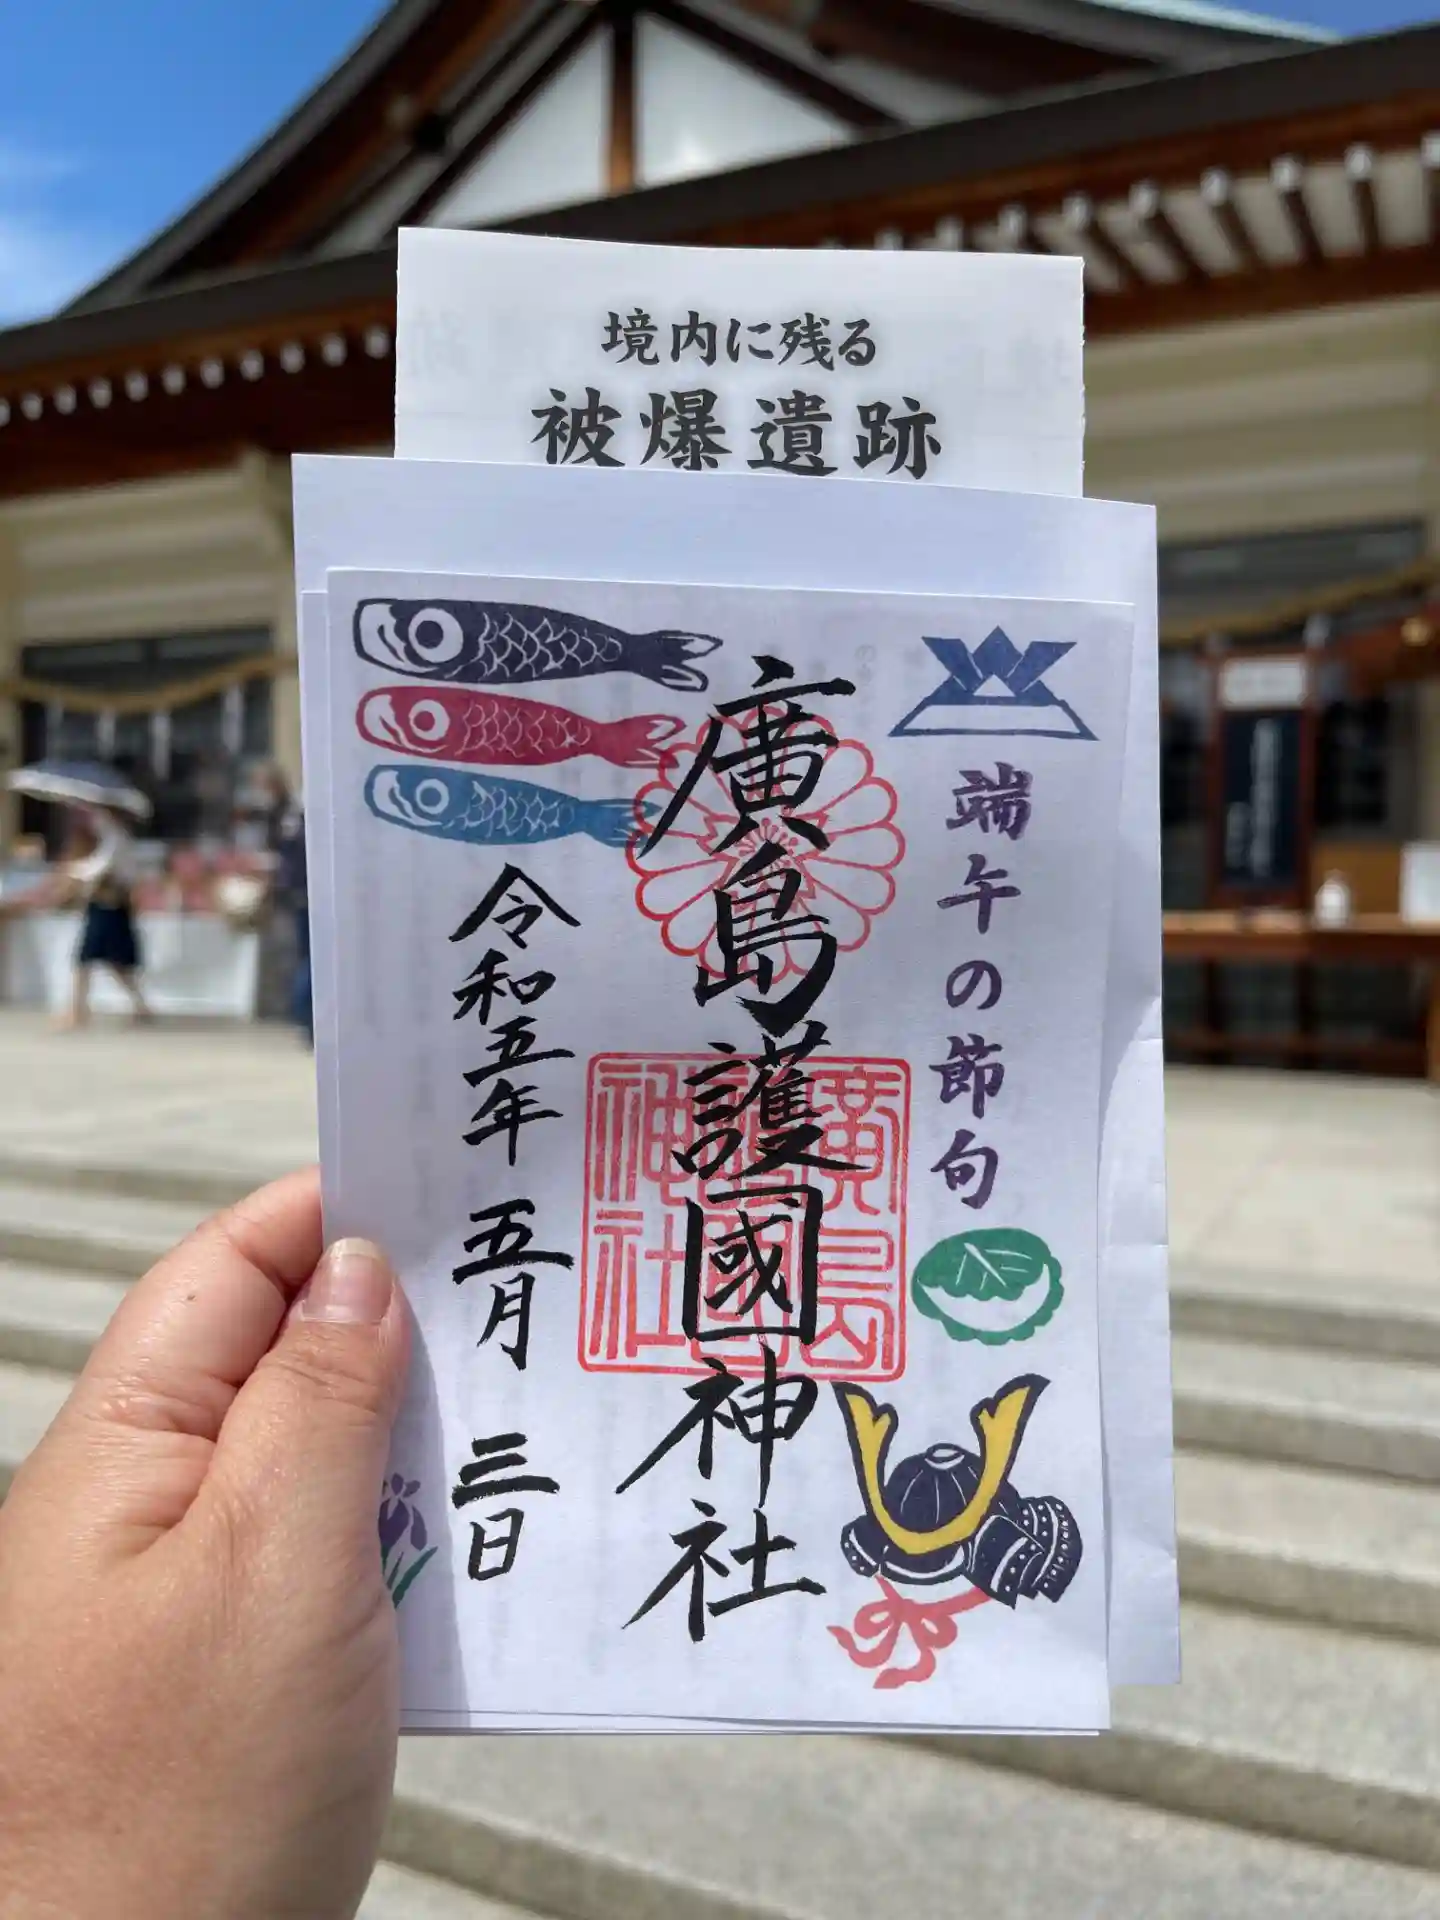 境内に残る
被爆遺跡
端午の節句
廣島護國神社
令和五年 五月 三日
廣島
護國
神社